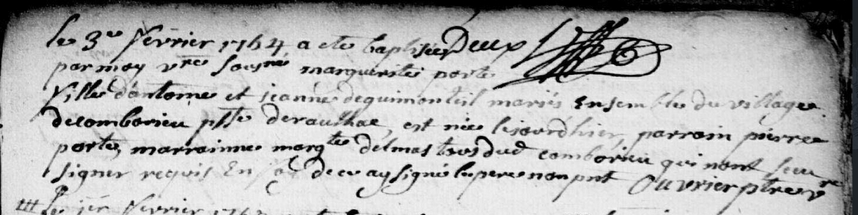 le 3e février 1764 a ete baptisée Deux
par moy vre sousné marguerite porte
fille d'antoine et jeanne dequimonteil mariés Ensemble du village
decomborieu psse derauthac, est née lejourdhier, parrain pierre
porte, marrainne margte delmas tous dud comborieu qui n'ont sceu
signer requis En foy dece ay signé le pere non pnt Ouvrier ptre vre
le 1er février